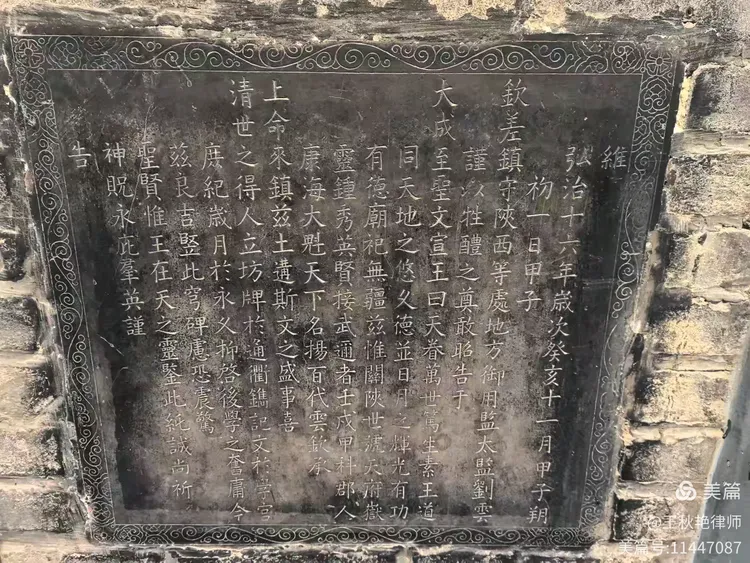 維
弘治十六年歲次癸亥十一月甲子朔
初一日甲子
欽差鎮守陝西等處地方御用監太監劉雲
謹以牲醴之奠敢昭告于
大成至聖文宣王曰天眷萬世篤生素王道
同天地之悠久德並日月之輝光有功
有德廟祀無疆茲惟關陝世號天府嶽
靈鍾秀英賢接武邇者壬戌甲科郡人
康海大魁天下名揚百代雲欽承
上命來鎮茲土遘斯文之盛事喜
清世之得人立坊牌於通衢鐫記文於學宮
庶紀歲月於永久抑啓後學之奮庸今
茲良吉竪此穹碑慮恐震驚
聖賢惟王在天之靈鑒此純誠尚祈
神貺永庇羣英謹
告
美篇
@王秋艳律师
美篇号:11447087